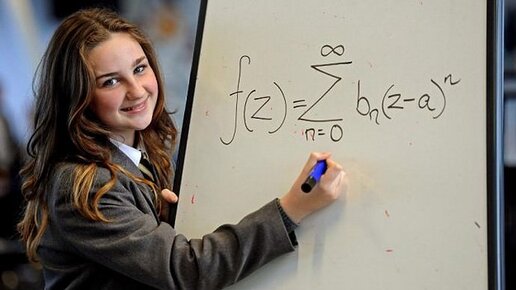 f(z)=∑_{n=0}^{∞} b_n(z-a)^n